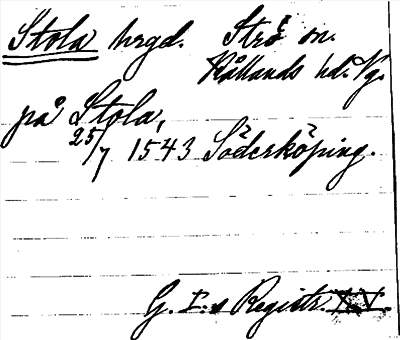 Stola hrgd. Strö sn.
Kållands hd. Vg.
på Stola,
25/7 1543 Söderköping.
G. I:s Registr. XV.